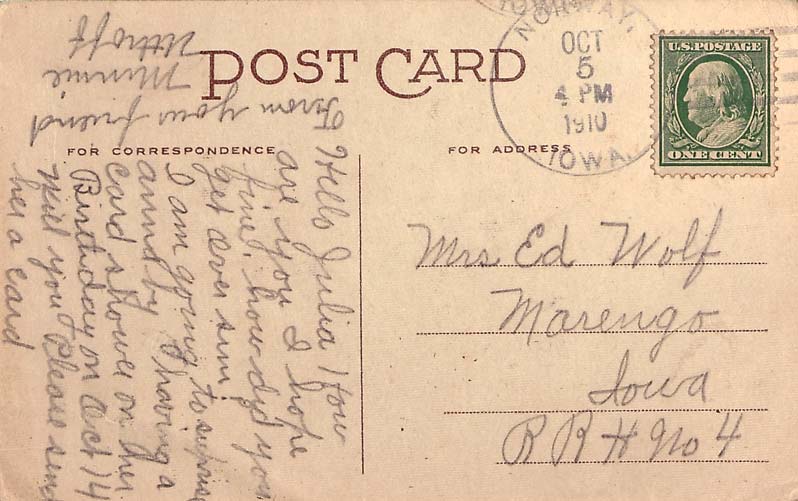 POST CARD
FOR CORRESPONDENCE
FOR ADDRESS
NORWAY,
OCT
5
4 PM
1910
IOWA.
U.S. POSTAGE
ONE CENT
Mrs Ed Wolf
Marengo
Iowa
R R # No 4
Hello Julia How
are you I hope
fine. how did you
get over
I am going to suprise
by having a
card shower on her
Birthday on Oct 14
Will you Please send
her a card
From your friend
Minnie
Uthoff